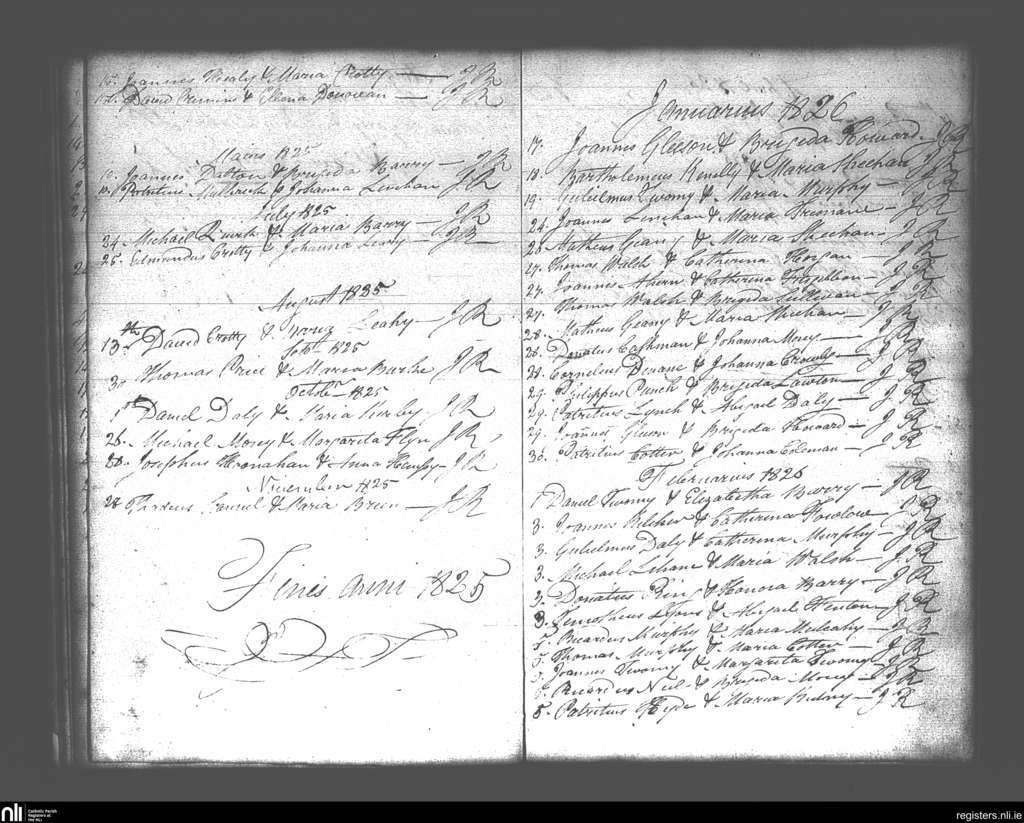 15. Joannes Healy & Maria Crotty — J R
17. David Cremins & Elena Donovan — J R
Maius 1825
10. Joannes Dalton & Brigida Barry — J R
10. Patritius & Johanna Linehan J R
July 1825
24. Michael & Maria Barry — J R
25. Edmundus Crotty & Johanna Leary — J R
August 1825
13th David Crotty & Leahy — J R
Septr 1825
30 Thomas Price & Maria Burke J R
October 1825
1st Daniel Daly & Maria Kirby J R
26. Michael Morey & Margarita Flyn J R
28. Josephus & Anna J R
November 1825
28 & Maria Brien — J R
Finis anni 1825
Januarius 1826
17. Joannes Gleeson & Brigida Howard — J R
18. Bartholemeus & Maria Meehan J R
19. Gulielmus Twomy & Maria Murphy — J R
24. Joannes Linehan & Maria — J R
26. Matheus Geany & Maria Sheehan — J R
27. Thomas Walsh & Catherina Horgan — J R
27. Joannes Ahern & Catherina — J R
27. Thomas Walsh & Brigida Sullivan — J R
28. Matheus Geany & Maria Meehan — J R
28. Donatus Cashman & Johanna Morey — J R
28. Cornelius Dinane & Johanna Crowly — J R
29. Philippus Punch & Brigida Lawton — J R
29. Patritius Lynch & Abigael Daly — J R
29. Joannes Gleeson & Brigida — J R
30. Patritius Cotter & Johanna Coleman — J R
Februarius 1826
1 Daniel Twomy & Elizabetha Barry — J R
3. Joannes & Catherina — J R
3. Gulielmus Daly & Catherina Murphy — J R
3. Michael Lehane & Maria Walsh — J R
3. Donatus Ring & Honora Barry — J R
3. Timotheus Lyons & Abigael Henton — J R
5. Ricardus Murphy & Maria — J R
5. Thomas Murphy & Maria Cotter — J R
5. Joannes Twomy & Margarita Twomy — J R
5. Ricardus & Brigida Morey — J R
5. Patritius Hyde & Maria — J R
nli
Catholic Parish
Registers at
the NLI
registers.nli.ie